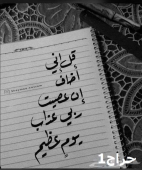 قل إني
أخاف
إن عصيت
ربي عذاب
يوم عظيم
حراج1